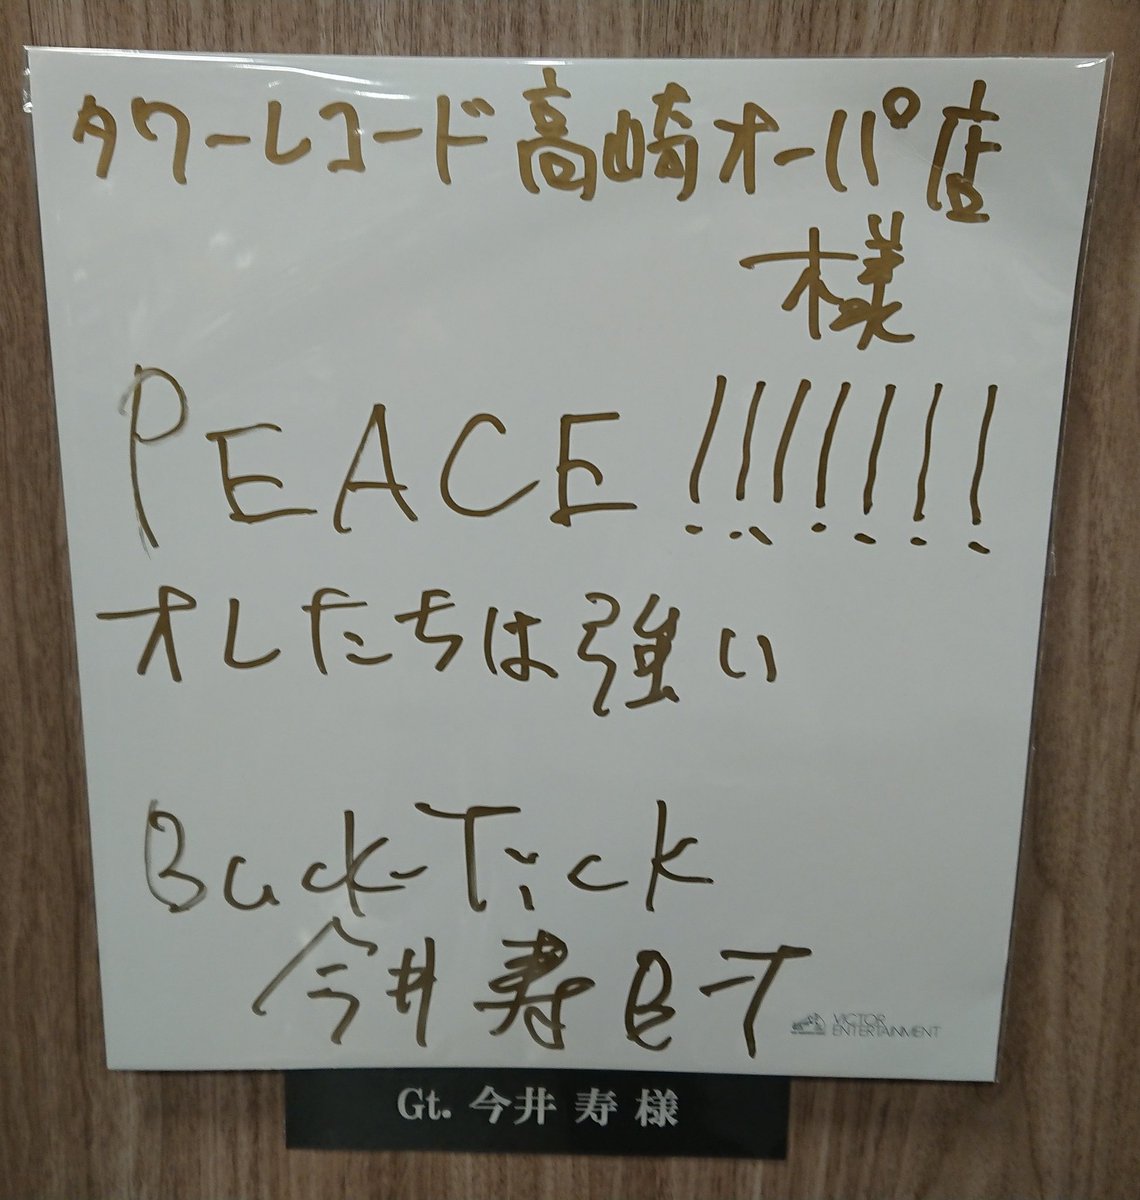 タワーレコード高崎オーパ店
様
PEACE!!!!!!!
オレたちは強い
Buck-Tick
今井寿 B-T
VICTOR
ENTERTAINMENT
Gt. 今井 寿 様